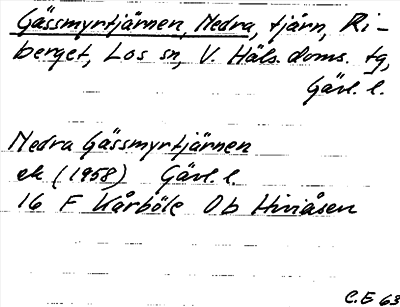 Gässmyrtjärnen, Nedra, tjärn, Ri-
berget, Los sn, V. Häls. doms. tg,
Gävl. l.
Nedra Gässmyrtjärnen
ek (1958) Gävl. l.
16 F Kårböle Ob Hiviåsen
C.E 63